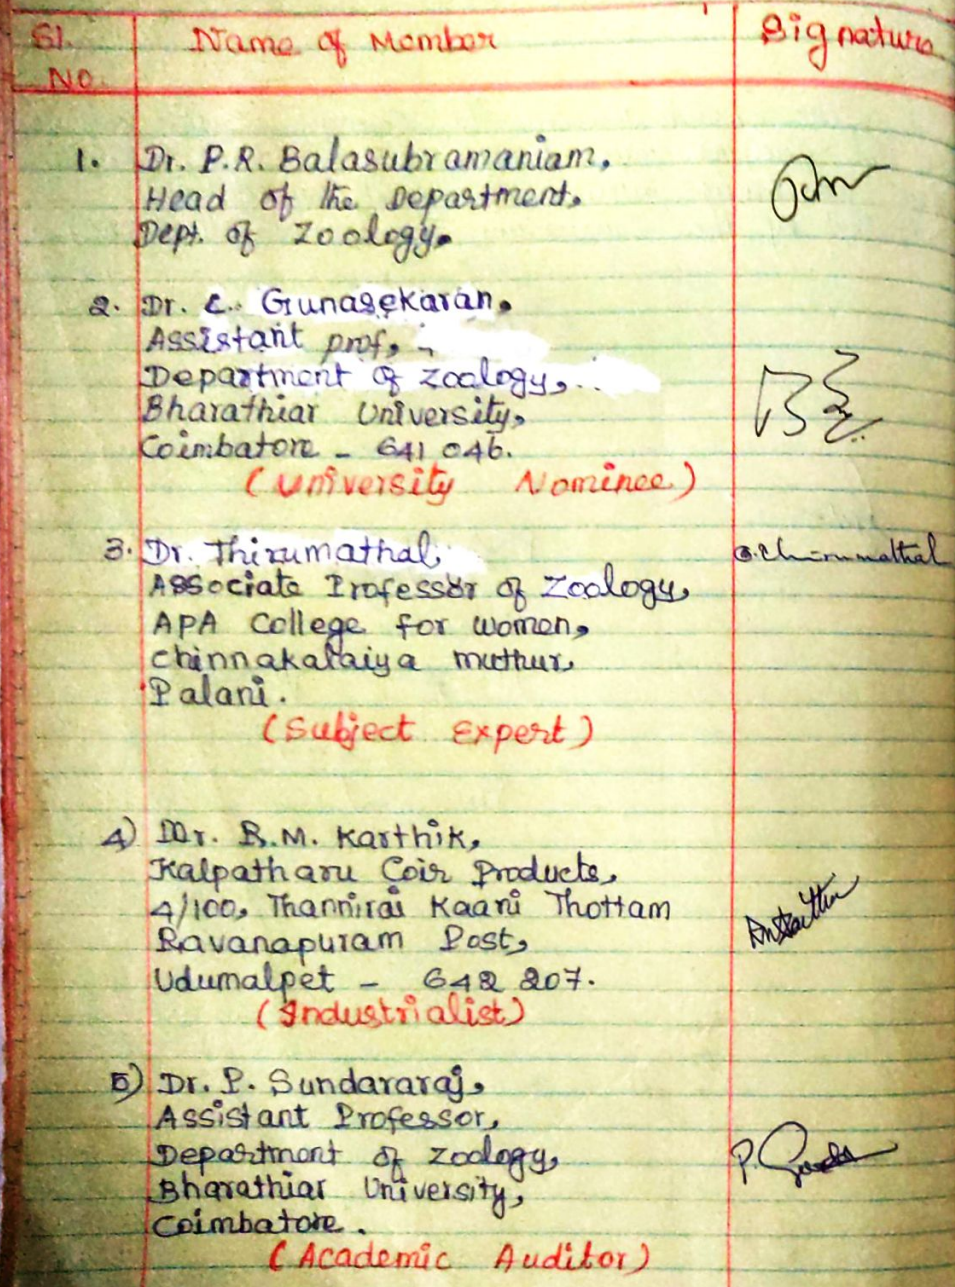 Sl. No. Name of Member Signature
1. Dr. P.R. Balasubramaniam,
Head of the Department,
Dept. of Zoology.
2. Dr. C. Gunasekaran,
Assistant prof,
Department of Zoology,
Bharathiar University,
Coimbatore - 641 046.
(University Nominee)
3. Dr. Thirumathal,
Associate Professor of Zoology,
APA College for women,
Chinnakalaiya muthur,
Palani.
(Subject Expert)
4) Mr. R.M. Karthik,
Kalpatharu Coir Products,
4/100, Thannirai Kaani Thottam
Ravanapuram Post,
Udumalpet - 642 207.
(Industrialist)
5) Dr. P. Sundararaj,
Assistant Professor,
Department of Zoology,
Bharathiar University,
Coimbatore.
(Academic Auditor)